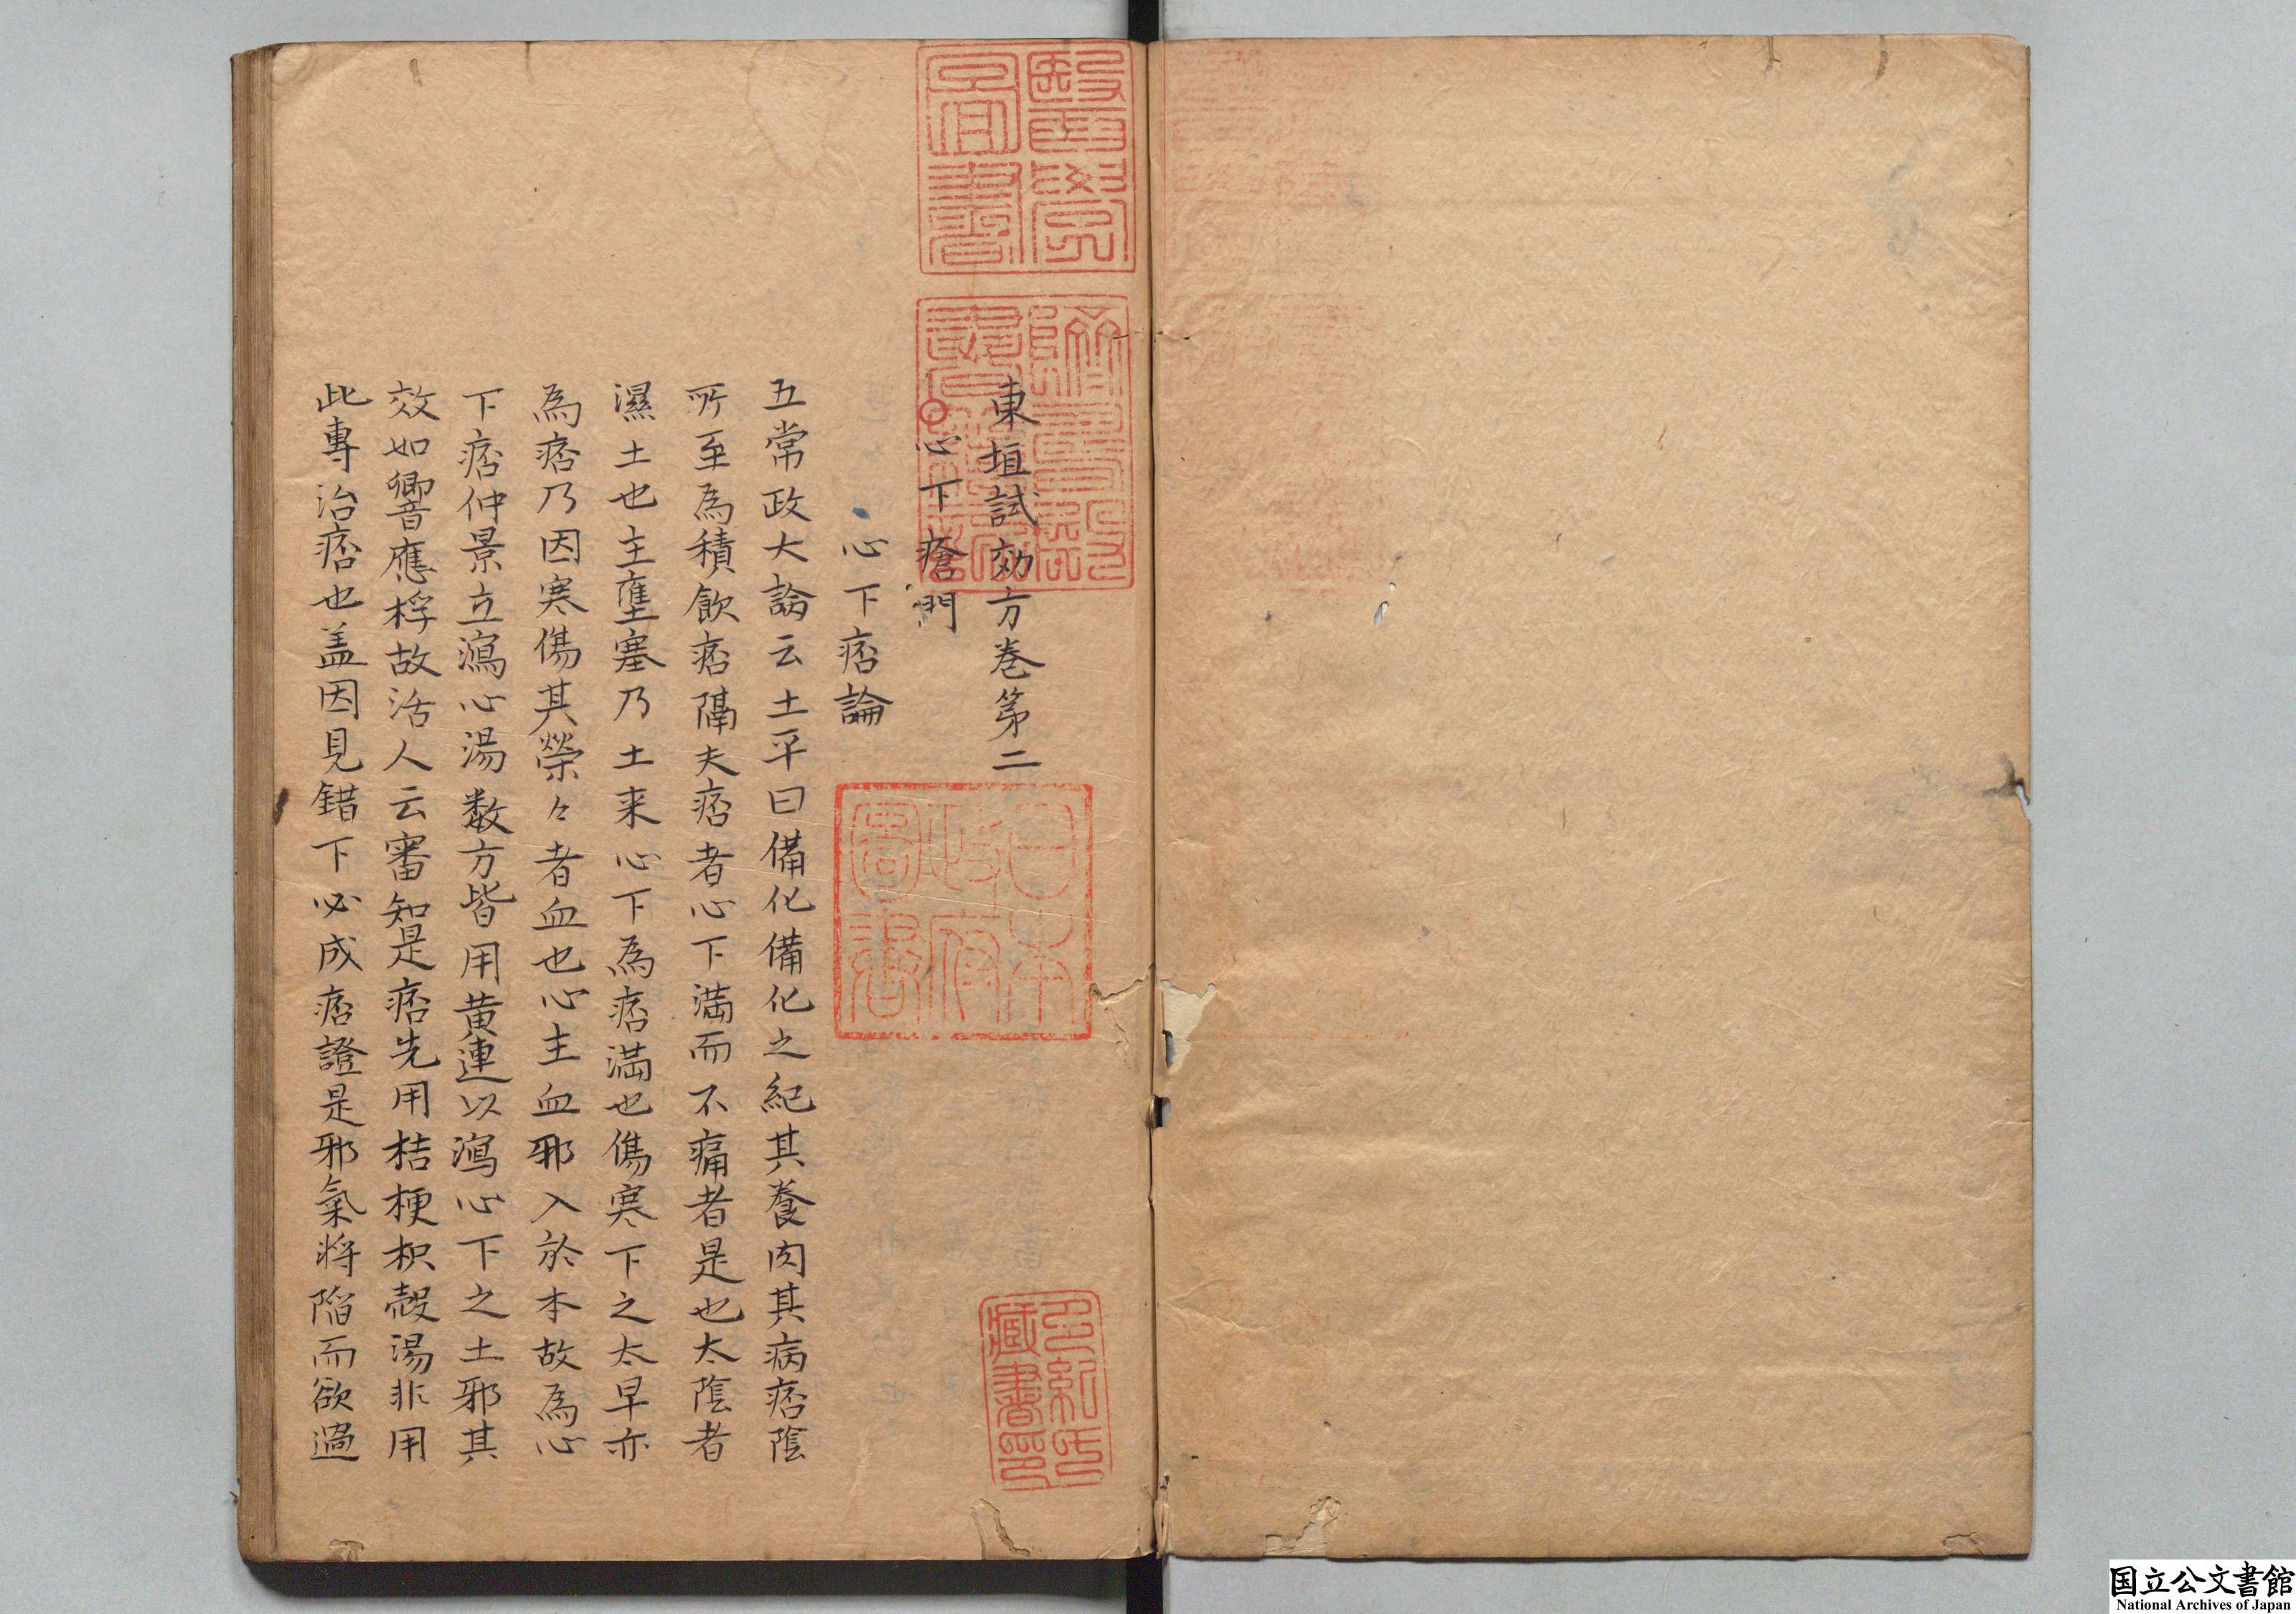 東垣試効方卷第二
心下痞門
心下痞論
五常政大論云土平曰備化備化之紀其養肉其病痞陰
所至為積飲痞隔夫痞者心下滿而不痛者是也太陰者
濕土也主壅塞乃土来心下為痞滿也傷寒下之太早亦
為痞乃因寒傷其榮々者血也心主血邪入於本故為心
下痞仲景立瀉心湯数方皆用黄連以瀉心下之土邪其
效如響應桴故活人云審知是痞先用桔梗枳殼湯非用
此專治痞也盖因見錯下必成痞證是邪氣将陷而欲過
醫學圖書
躋壽殿書籍記
日本政府圖書
多紀氏藏書印
国立公文書館
National Archives of Japan